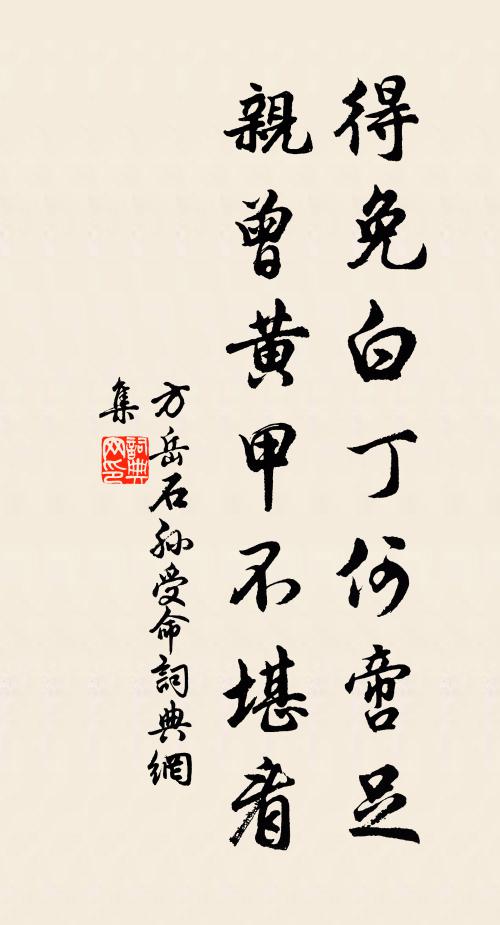 得免白丁何啻足
親曾黃甲不堪看
方岳石孫受命詞典網
集
詞典
網印